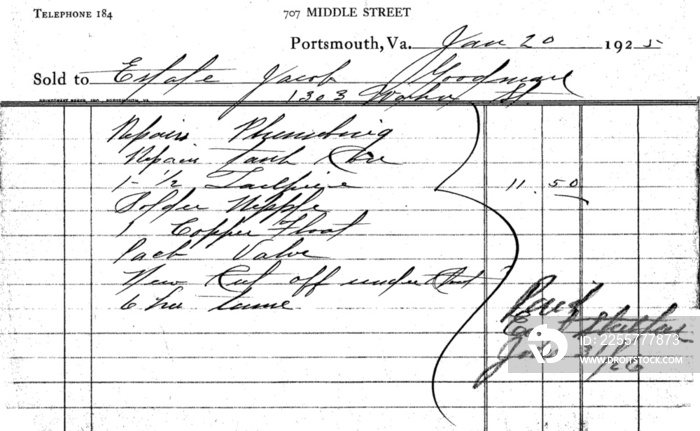 TELEPHONE 184 707 MIDDLE STREET
Portsmouth, Va. Jan 20 1925
Sold to Estate Jacob Goodman
1303 St.
Repairs Plumbing
Repair Tank
1- 1/2 Tailpiece 11.50
Solder Nipple
1 Copper Float
Pack Valve
New Cut off under
6 hrs time
Paid
ID: 2255777873
WWW.DROITSTOCK.COM